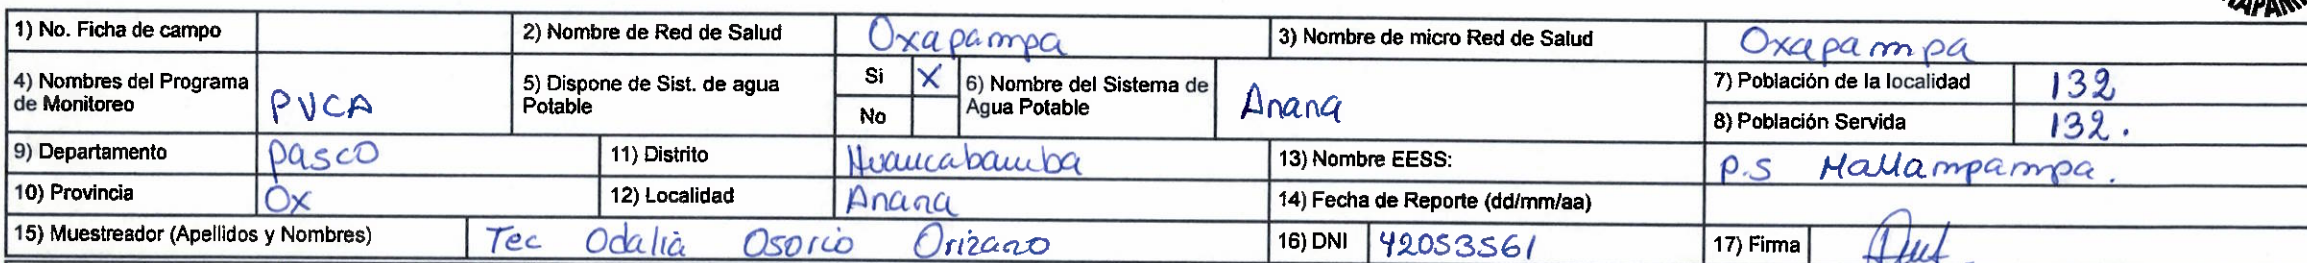 APAMPA
1) No. Ficha de campo 2) Nombre de Red de Salud Oxapampa 3) Nombre de micro Red de Salud Oxapampa
4) Nombres del Programa de Monitoreo PVCA 5) Dispone de Sist. de agua Potable Si X No 6) Nombre del Sistema de Agua Potable Anana 7) Población de la localidad 132
8) Población Servida 132.
9) Departamento pasco 11) Distrito Huancabamba 13) Nombre EESS: P.S Mallampampa.
10) Provincia Ox 12) Localidad Anana 14) Fecha de Reporte (dd/mm/aa)
15) Muestreador (Apellidos y Nombres) Tec Odalia Osorio Orizano 16) DNI 42053561 17) Firma